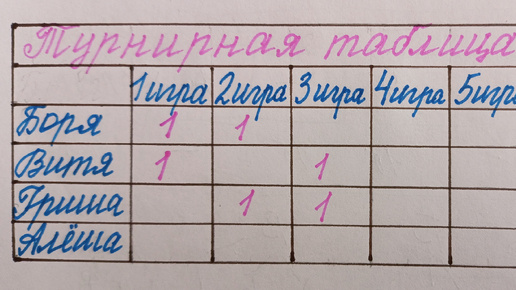 Турнирная таблица
1 игра 2 игра 3 игра 4 игра 5 игр
Боря 1 1
Витя 1 1
Гриша 1 1
Алёша